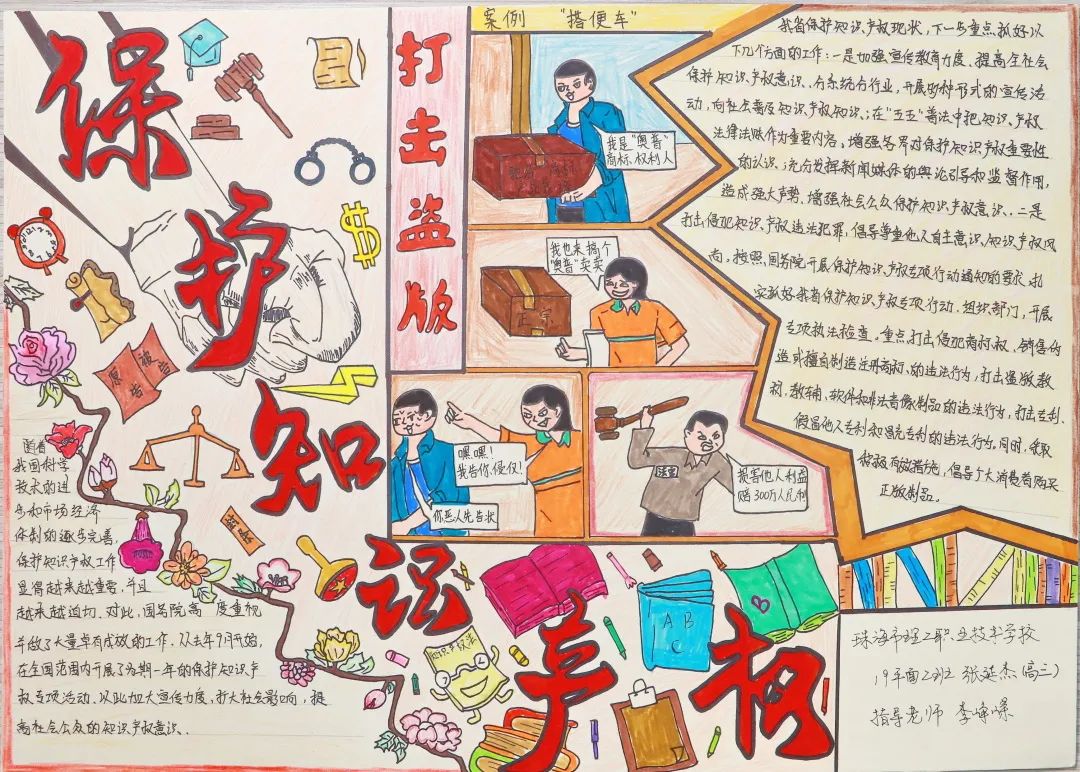 保护知识产权
打击盗版
案例 "搭便车"
我是"奥普"
商标,权利人
我也来搞个
"奥普"卖卖
正宗
嘿嘿!
我告你,侵权!
你恶人先告状
法官
损害他人利益
赔300万人民币
原告
被告
我省保护知识产权现状,下一步重点抓好以
下几个方面的工作:一是加强宣传教育力度、提高全社会
保护知识产权意识、分系统分行业,开展多种形式的宣传活
动,向社会普及知识产权知识;在"五五"普法中把知识产权
法律法规作为重要内容,增强各界对保护知识产权重要性
的认识、充分发挥新闻媒体的舆论引导和监督作用,
造成强大声势、增强社会公众保护知识产权意识、二是
打击侵犯知识产权违法犯罪,倡导尊重他人自主意识、知识产权风
尚。按照国务院开展保护知识产权专项行动通知的要求、扎
实抓好我省保护知识产权专项行动、组织部门,开展
专项执法检查。重点打击侵犯商标权、销售伪
造或擅自制造注册商标,的违法行为,打击盗版教
材,教辅,软件和非法音像制品的违法行为,打击专利、
假冒他人专利和冒充专利的违法行为,同时,采取
积极有效措施,倡导广大消费者购买
正版制品。
随着
我国科学
技术的进
步和市场经济
体制的逐步完善,
保护知识产权工作
显得越来越重要,并且
越来越迫切、对此,国务院高度重视
并做了大量卓有成效的工作、从去年9月开始,
在全国范围内开展了为期一年的保护知识产
权专项活动、以此加大宣传力度,扩大社会影响,提
高社会公众的知识产权意识、
A B
C
珠海市理工职业技术学校
19平面2班 张延杰(高三)
指导老师 李嵘嵘